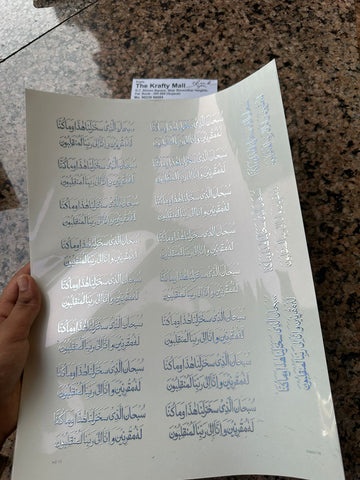 The Krafty Mall
سُبحان الَّذی سَخَّرَلَنا هٰذا وَما كُنّا
لَهُ مُقرِنینَ وَ اِنّا اِلی رَبِّنا لَمُنقَلِبُون
سُبحان الَّذی سَخَّرَلَنا هٰذا وَما كُنّا
لَهُ مُقرِنینَ وَ اِنّا اِلی رَبِّنا لَمُنقَلِبُون
سُبحان الَّذی سَخَّرَلَنا هٰذا وَما كُنّا
لَهُ مُقرِنینَ وَ اِنّا اِلی رَبِّنا لَمُنقَلِبُون
سُبحان الَّذی سَخَّرَلَنا هٰذا وَما كُنّا
لَهُ مُقرِنینَ وَ اِنّا اِلی رَبِّنا لَمُنقَلِبُون
سُبحان الَّذی سَخَّرَلَنا هٰذا وَما كُنّا
لَهُ مُقرِنینَ وَ اِنّا اِلی رَبِّنا لَمُنقَلِبُون
سُبحان الَّذی سَخَّرَلَنا هٰذا وَما كُنّا
لَهُ مُقرِنینَ وَ اِنّا اِلی رَبِّنا لَمُنقَلِبُون
سُبحان الَّذی سَخَّرَلَنا هٰذا وَما كُنّا
لَهُ مُقرِنینَ وَ اِنّا اِلی رَبِّنا لَمُنقَلِبُون
سُبحان الَّذی سَخَّرَلَنا هٰذا وَما كُنّا
لَهُ مُقرِنینَ وَ اِنّا اِلی رَبِّنا لَمُنقَلِبُون
سُبحان الَّذی سَخَّرَلَنا هٰذا وَما كُنّا
لَهُ مُقرِنینَ وَ اِنّا اِلی رَبِّنا لَمُنقَلِبُون
سُبحان الَّذی سَخَّرَلَنا هٰذا وَما كُنّا
لَهُ مُقرِنینَ وَ اِنّا اِلی رَبِّنا لَمُنقَلِبُون
سُبحان الَّذی سَخَّرَلَنا هٰذا وَما كُنّا
لَهُ مُقرِنینَ وَ اِنّا اِلی رَبِّنا لَمُنقَلِبُون
سُبحان الَّذی سَخَّرَلَنا هٰذا وَما كُنّا
لَهُ مُقرِنینَ وَ اِنّا اِلی رَبِّنا لَمُنقَلِبُون
سُبحان الَّذی سَخَّرَلَنا هٰذا وَما كُنّا
لَهُ مُقرِنینَ وَ اِنّا اِلی رَبِّنا لَمُنقَلِبُون
سُبحان الَّذی سَخَّرَلَنا هٰذا وَما كُنّا
لَهُ مُقرِنینَ وَ اِنّا اِلی رَبِّنا لَمُنقَلِبُون
سُبحان الَّذی سَخَّرَلَنا هٰذا وَما كُنّا
لَهُ مُقرِنینَ وَ اِنّا اِلی رَبِّنا لَمُنقَلِبُون
سُبحان الَّذی سَخَّرَلَنا هٰذا وَما كُنّا
لَهُ مُقرِنینَ وَ اِنّا اِلی رَبِّنا لَمُنقَلِبُون
سُبحان الَّذی سَخَّرَلَنا هٰذا وَما كُنّا
لَهُ مُقرِنینَ وَ اِنّا اِلی رَبِّنا لَمُنقَلِبُون
سُبحان الَّذی سَخَّرَلَنا هٰذا وَما كُنّا
لَهُ مُقرِنینَ وَ اِنّا اِلی رَبِّنا لَمُنقَلِبُون
سُبحان الَّذی سَخَّرَلَنا هٰذا وَما كُنّا
لَهُ مُقرِنینَ وَ اِنّا اِلی رَبِّنا لَمُنقَلِبُون